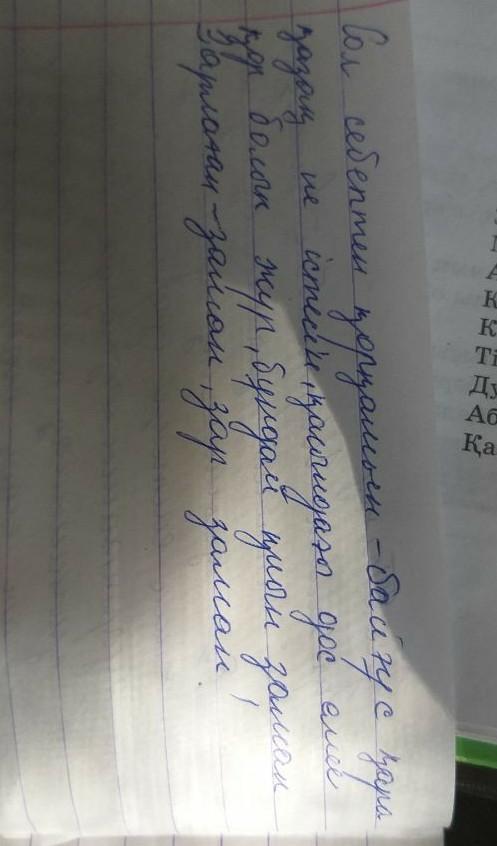 Сол себептен қорқамын - байғұс қара
қазақ не істесін, қасындағы дос емес
қор болып жүр, бұндай қиын заман
Зарлаған - заман, зар заман!
К
К
Ті
Ду
Аб
Қа